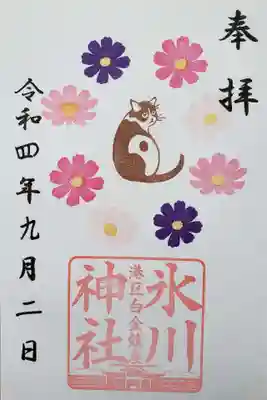 奉拝
氷川
港区白金鎮座
神社
令和四年九月二日